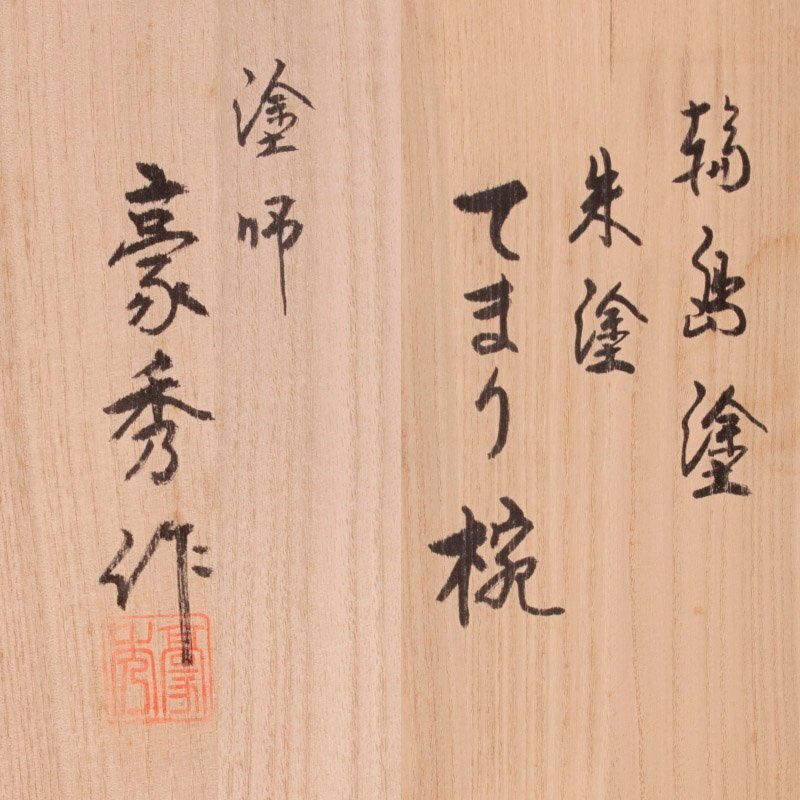 輪島塗
朱塗
てまり椀
塗師
豪秀作
豪秀